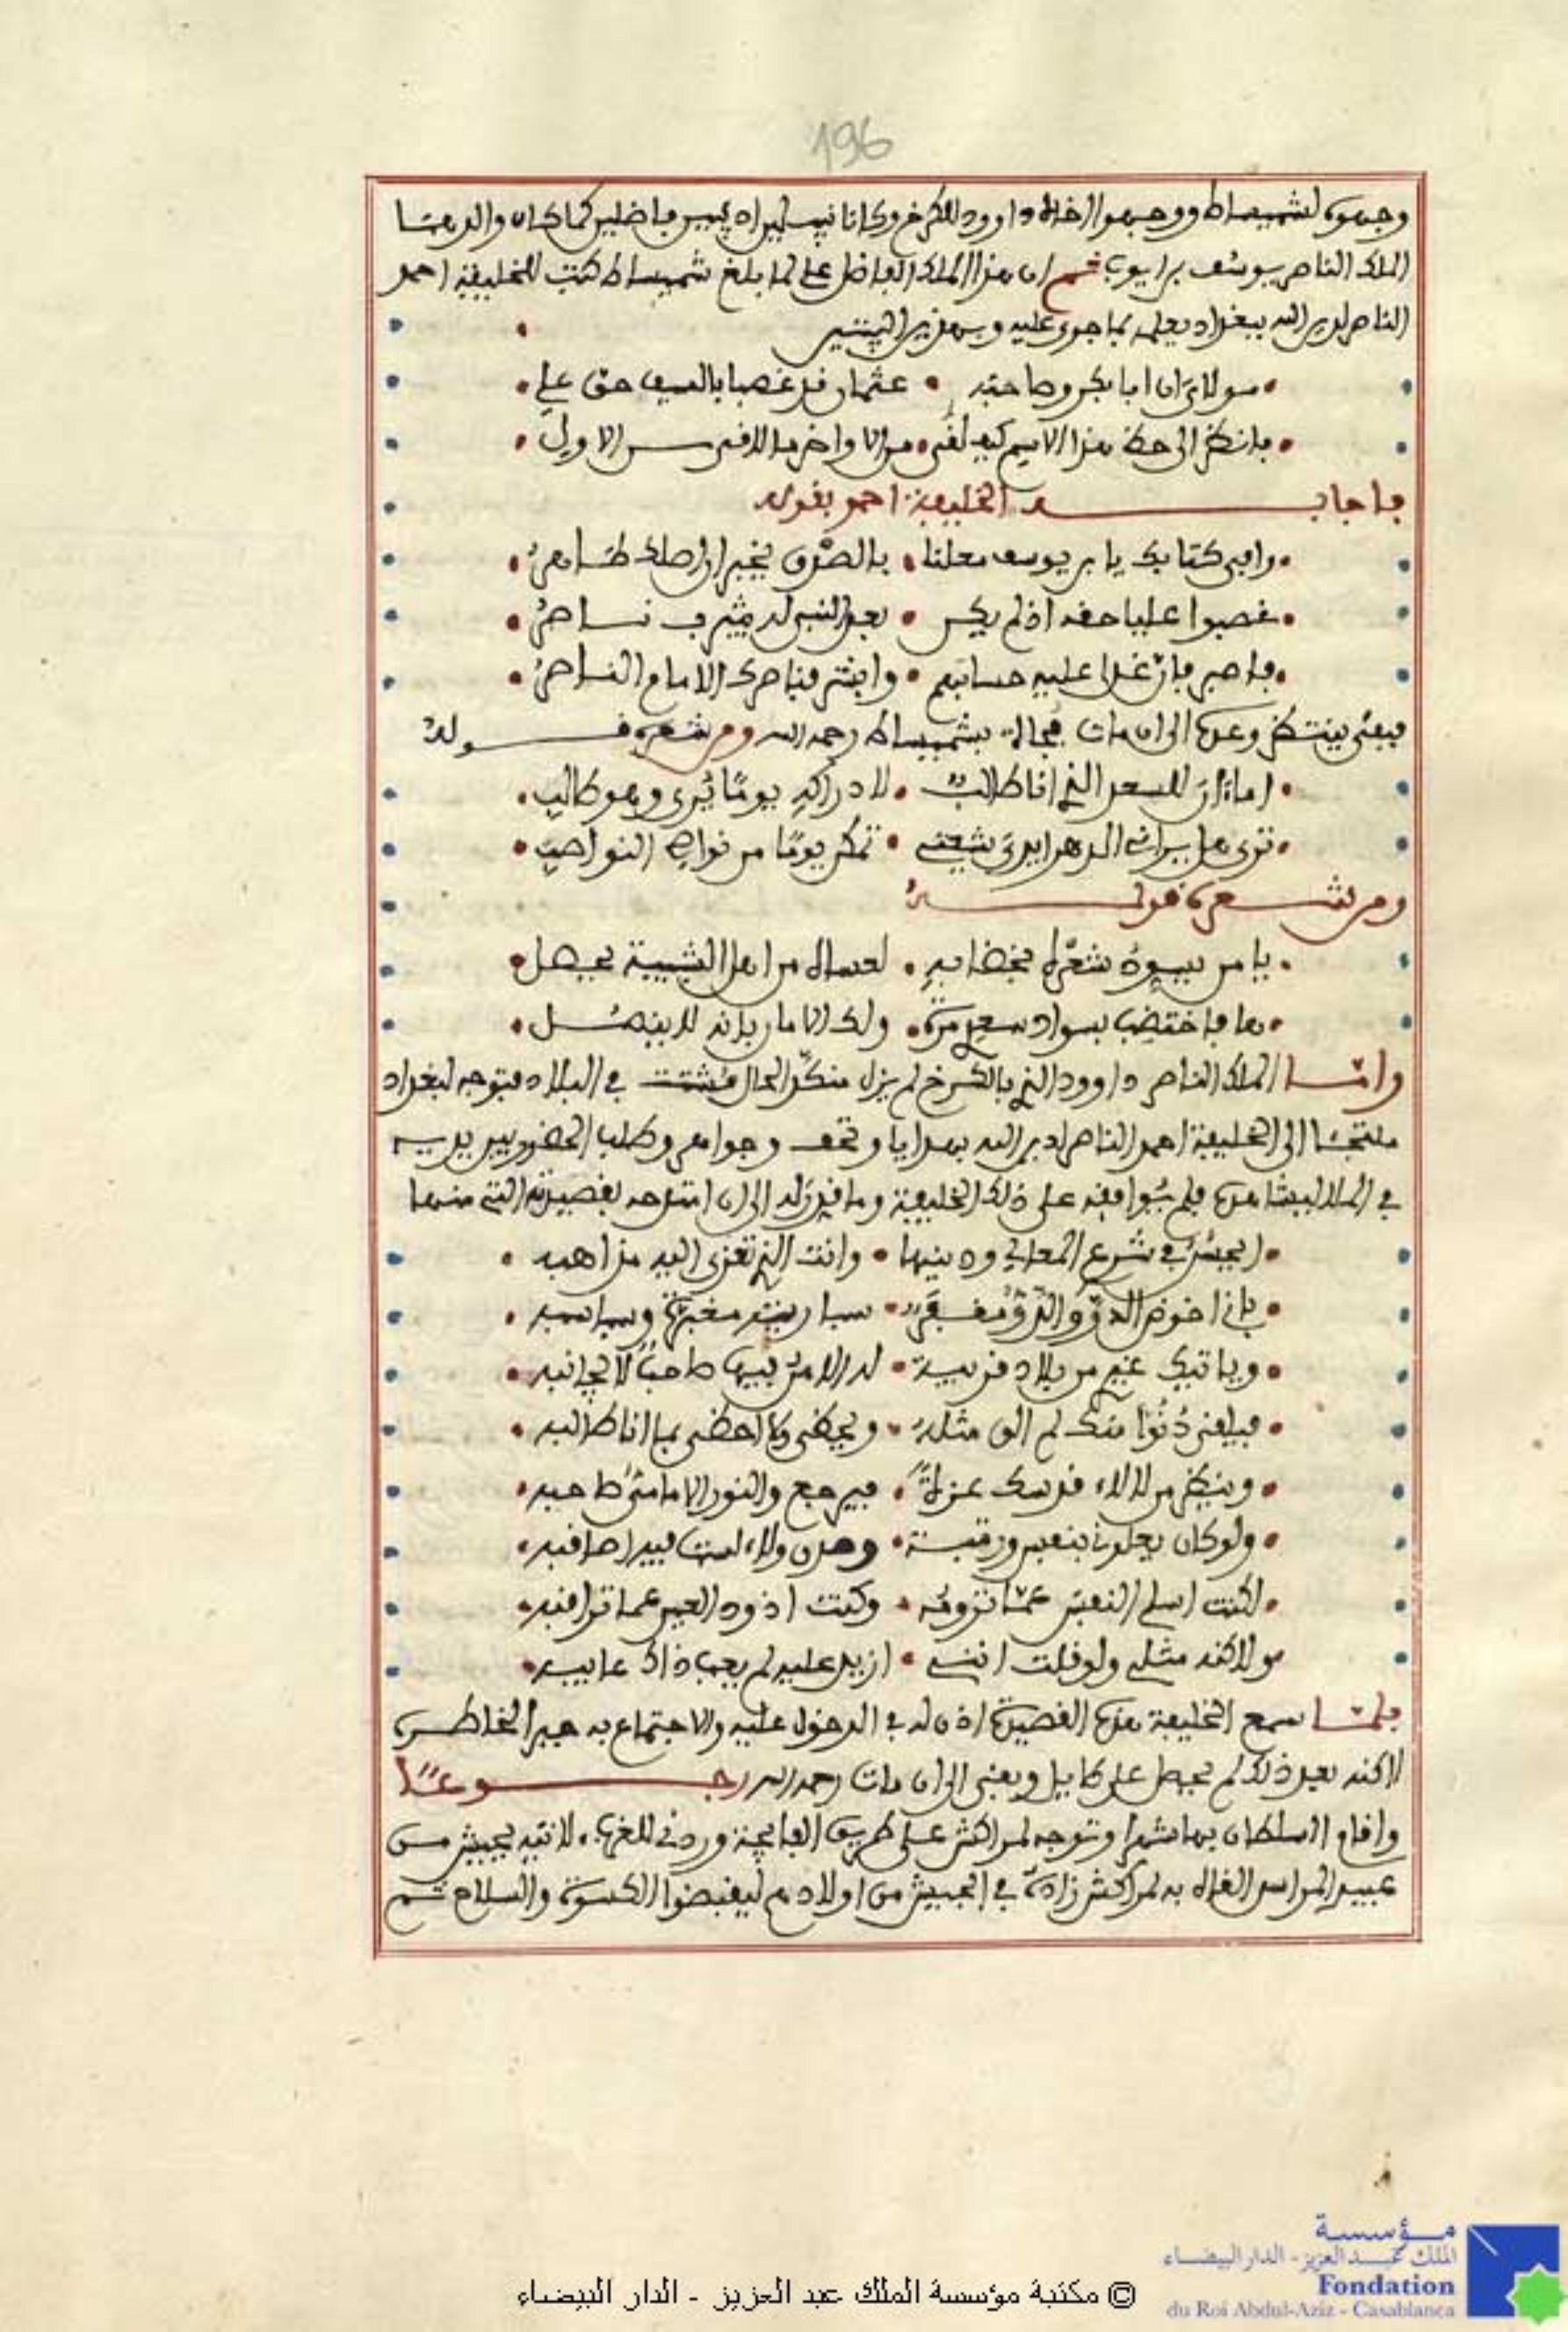 196
وجهوه لشميساط ووجهوا اخاه داوود للكرخ وكانا نبيلين اديبين فاضلين كما كان والدهما
الملك الناصر يوسف بن ايوب ثم ان هذا الملك الفاضل علي لما بلغ شميساط كتب للخليفة احمد
الناصر لدين الله ببغداد يعلمه بما جرى عليه وبهذين البيتين
مولاي ان ابا بكر وصاحبه • عثمان قد غصبا بالسيف حق علي
فانظر الى حظ هذا الاسم كيف لقى • من الاواخر ما لاقى من الاول
فاجابه الخليفة احمد بقوله
وافى كتابك يا بن يوسف معلنا • بالصدق يخبر ان اصلك طاهر
غصبوا عليا حقه اذ لم يكن • بعد النبي له بيثرب ناصر
فاصبر فان غدا عليه حسابهم • وابشر فناصرك الامام الناصر
فبقى ينتظر وعده الى ان مات فجاة بشميساط رحمه الله ومن شعره قوله
اما ان للسعد الذي انا طالب • لادراكه يوما يرى وهو طالب
ترى هل يراني الدهر ايدي شيعتي • تمكن يوما من نواصي النواصب
ومن شعره قوله
يا من يسود شعره بخضابه • لعساه من اهل الشبيبة يحصل
ها فاختضب بسواد سعدي مرة • ولك الامان بانه لا ينصل
واما الملك الناصر داوود الذي بالكرخ لم يزل منكد الحال مشتت في البلاد فتوجه لبغداد
ملتجئا الى الخليفة احمد الناصر لدين الله بهدايا وتحف وجواهر وطلب الحضور بين يديه
في الملا ليشاهده فلم يوافقه على ذلك الخليفة وما قبل له الى ان امتدحه بقصيدته التي منها
ايحسن في شرع المعالي ودينها • وانت الذي تعزى اليه مذاهبه
باني اخوض الدو والدو مقفر • سباريته مغبرة وسباسبه
وياتيك غيري من بلاد قريبة • له الامن فيها صاحب لا يجانبه
فيلقى دنوا منك لم الق مثله • ويحظى وما احظى بما انا طالبه
وينظر من لالاء قدسك غرة • فيرجع والنور الامامي صاحبه
ولو كان يعلوني بنفس ورتبة • وصدق ولاء لست فيه اصاقبه
لكنت اسلي النفس عما ترومه • وكنت اذود العين عما تراقبه
ولاكنه مثلي ولو قلت انني • ازيد عليه لم يعب ذاك عايبه
فلما سمع الخليفة هذه القصيدة اذن له في الدخول عليه والاجتماع به جبرا لخاطره
لاكنه بعد ذلك لم يحصل على طايل وبقى الى ان مات رحمه الله رجوعا
واقام السلطان بها شهرا وتوجه لمراكش على طريق الفايجة وردني للغرب، لاتيه بجيش من
عبيد المراسم القاه به لمراكش زيادة في الجيش من اولادهم ليقبضوا الكسوة والسلاح ثم
مؤسسة
الملك عبد العزيز - الدار البيضاء
Fondation
du Roi Abdul-Aziz - Casablanca
© مكتبة مؤسسة الملك عبد العزيز - الدار البيضاء